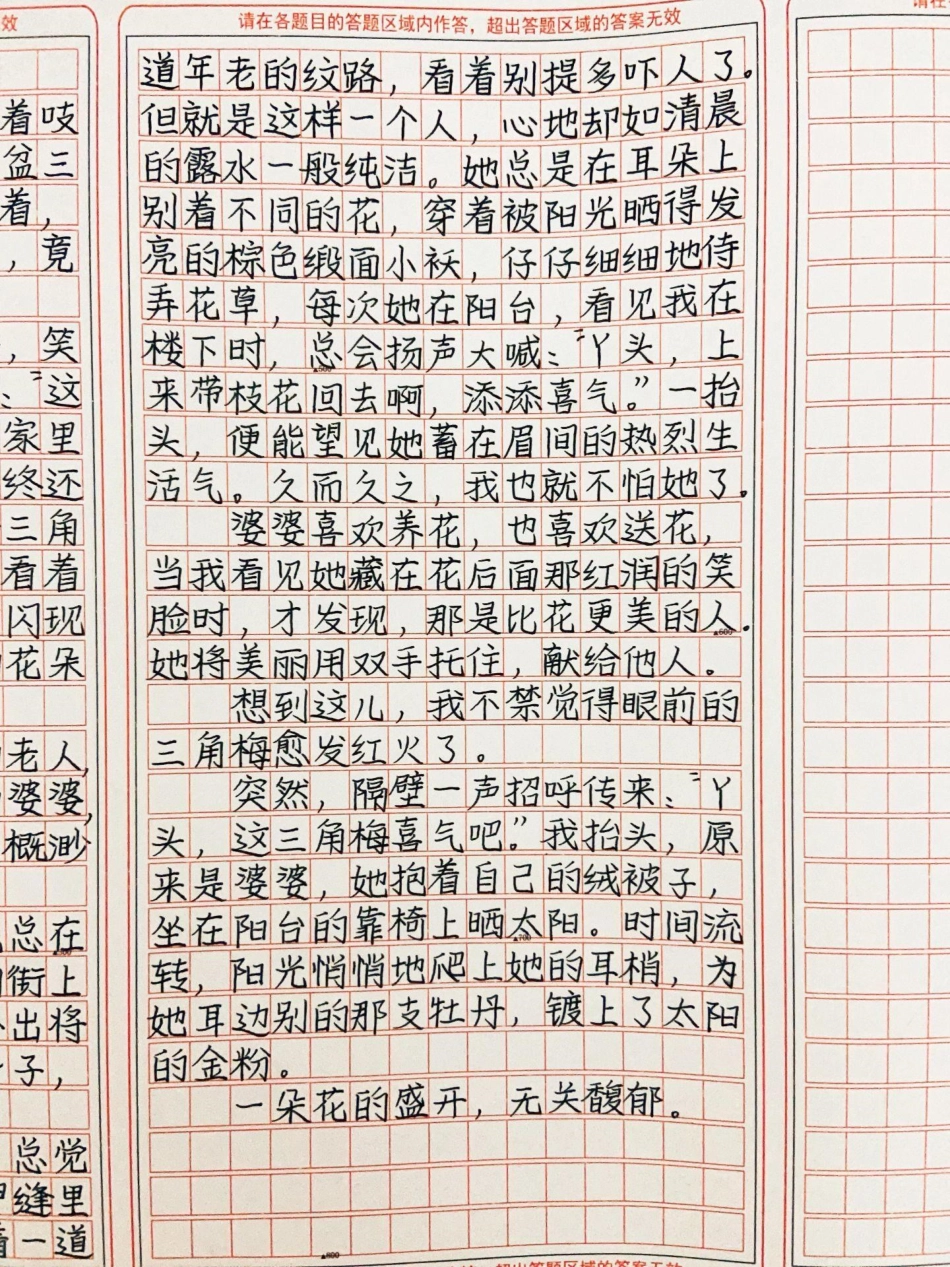 效
着吱
盆三
着，
，竟
，笑
：“这
家里
终还
三角
看着
闪现
花朵
老人，
婆婆，
概渺
总在
街上
出将
子，
总觉
缝里
着一道
请在各题目的答题区域内作答，超出答题区域的答案无效
道年老的纹路，看着别提多吓人了。
但就是这样一个人，心地却如清晨
的露水一般纯洁。她总是在耳朵上
别着不同的花，穿着被阳光晒得发
亮的棕色缎面小袄，仔仔细细地侍
弄花草，每次她在阳台，看见我在
楼下时，总会扬声大喊：“丫头，上
来带枝花回去啊，添添喜气。”一抬
头，便能望见她蓄在眉间的热烈生
活气。久而久之，我也就不怕她了。
婆婆喜欢养花，也喜欢送花，
当我看见她藏在花后面那红润的笑
脸时，才发现，那是比花更美的人。
她将美丽用双手托住，献给他人。
想到这儿，我不禁觉得眼前的
三角梅愈发红火了。
突然，隔壁一声招呼传来：“丫
头，这三角梅喜气吧。”我抬头，原
来是婆婆，她抱着自己的绒被子，
坐在阳台的靠椅上晒太阳。时间流
转，阳光悄悄地爬上她的耳梢，为
她耳边别的那支牡丹，镀上了太阳
的金粉。
一朵花的盛开，无关馥郁。
▲800